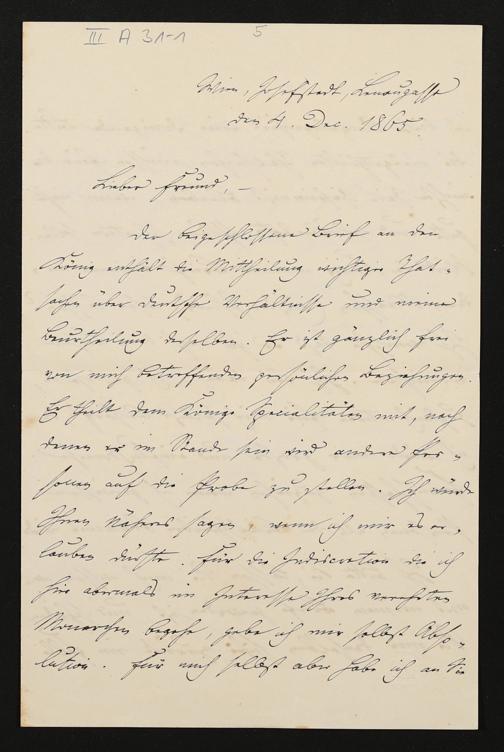 III A 31-1
5
Wien, Josefstadt, Lenaugasse
den 4. Dec. 1865.
Lieber Freund, –
Der beigeschlossene Brief an den
König enthält die Mittheilung wichtiger That-
sachen über deutsche Verhältnisse und meine
Beurtheilung derselben. Er ist gänzlich frei
von mich betreffenden persönlichen Beziehungen.
Er theilt dem Könige Specialitäten mit, nach
denen er im Stande sein wird andere Per-
sonen auf die Probe zu stellen. Ich würde
Ihnen Näheres sagen, wenn ich mir es er-
lauben dürfte. Für die Indiscretion die ich
hier abermals im Interesse Ihres verehrten
Monarchen begehe, gebe ich mir selbst Abso-
lution. Für mich selbst aber habe ich an Sie